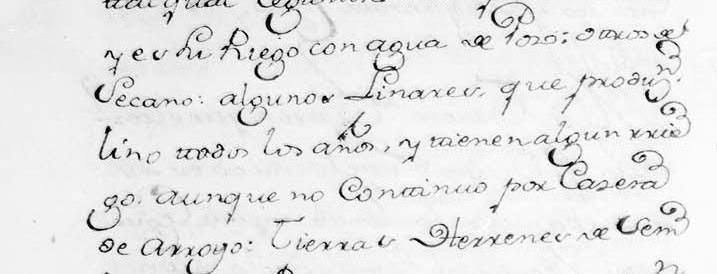 y es su Riego con agua de Pozo: otros de
Secano: algunos Linares, que produzn.
lino ttodos los años, y ttienen algun rrie
go, aunque no Conttinuo por Cazera
de Arroyo: Tierras Yterrenes de Sem